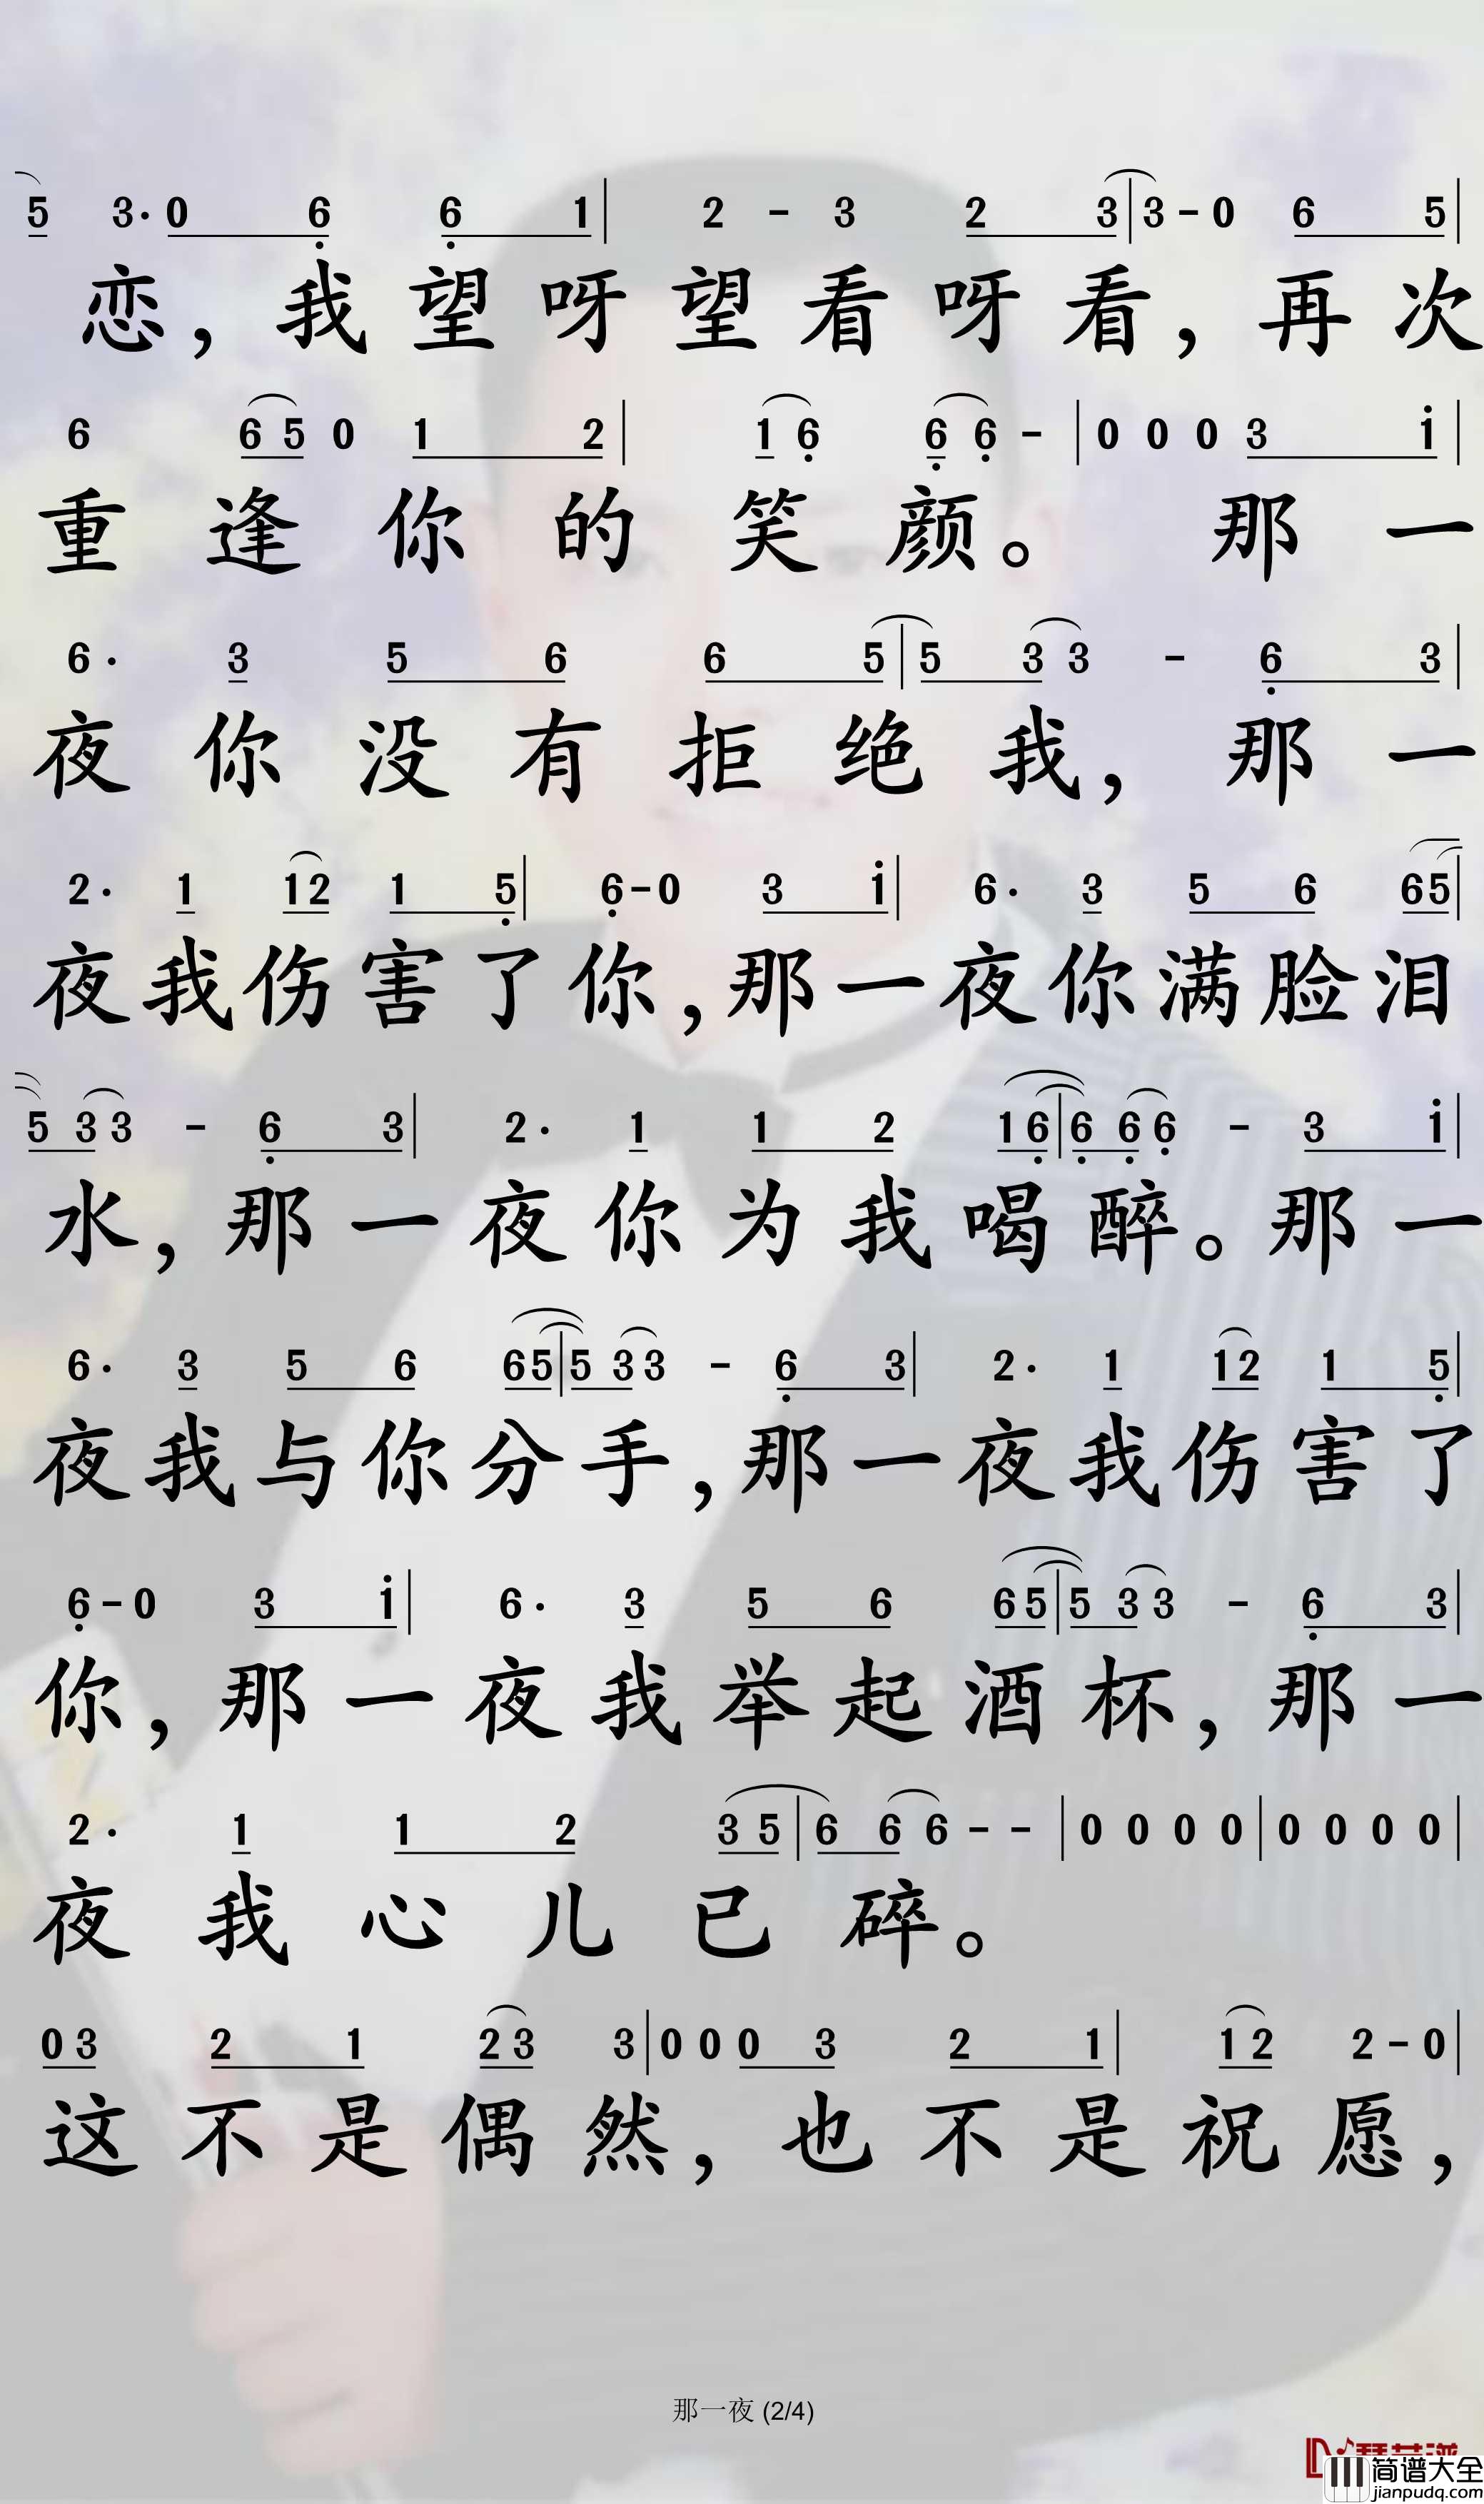 5 3· 0 6 6 1 | 2 - 3 2 3 | 3 - 0 6 5 |
恋，我望呀望看呀看，再次
6 6 5 0 1 2 | 1 6 6 6 - | 0 0 0 3 1 |
重逢你的笑颜。那一
6· 3 5 6 6 5 | 5 3 3 - 6 3 |
夜你没有拒绝我，那一
2· 1 1 2 1 5 | 6 - 0 3 1 | 6· 3 5 6 6 5 |
夜我伤害了你，那一夜你满脸泪
5 3 3 - 6 3 | 2· 1 1 2 1 6 | 6 6 6 - 3 1 |
水，那一夜你为我喝醉。那一
6· 3 5 6 6 5 | 5 3 3 - 6 3 | 2· 1 1 2 1 5 |
夜我与你分手，那一夜我伤害了
6 - 0 3 1 | 6· 3 5 6 6 5 | 5 3 3 - 6 3 |
你，那一夜我举起酒杯，那一
2· 1 1 2 3 5 | 6 6 6 - - | 0 0 0 0 | 0 0 0 0 |
夜我心儿已碎。
0 3 2 1 2 3 3 | 0 0 0 3 2 1 | 1 2 2 - 0 |
这不是偶然，也不是祝愿，
那一夜 (2/4)
简谱大全
jianpudq.com